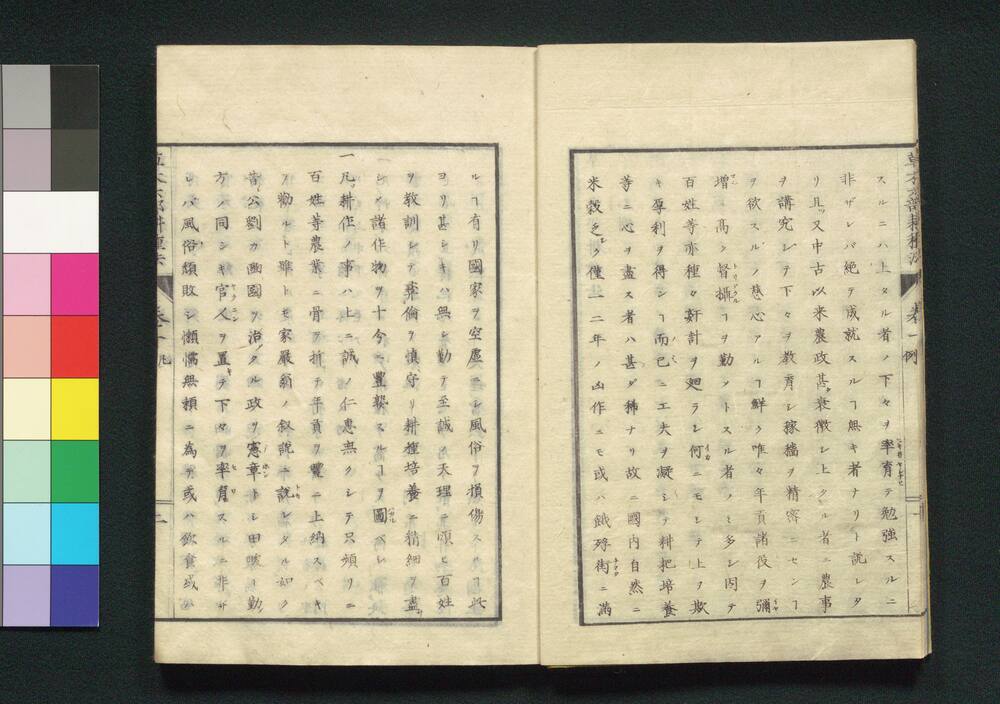 草木六部耕種法 卷一 例
スルニハ上タル者ノ下々ヲ率育テ勉強スルニ
非ザレバ絶テ成就スルヿ無キ者ナリト説レタ
リ且又中古以来農政甚衰微シ上タル者ニ農事
ヲ講究シテ下々ヲ教育シ稼穡ヲ精密ニセンヿ
ヲ欲スルノ慈心アルヿ鮮ク唯々年貢諸役ヲ彌
増ニ高ク督攝ヿヲ勤ントスル者ノミ多シ因テ
百姓等亦種々奸計ヲ廻ラシ何ニモシテ上ヲ欺
キ孚利ヲ得ンヿ而已ニ工夫ヲ凝シテ耕把培養
等ニ心ヲ盡ス者ハ甚ダ稀ナリ故ニ國内自然ニ
米穀乏ク僅一二年ノ凶作ニモ或ハ餓殍街ニ滿
ルヿ有リ國家ヲ空虚ニシ風俗ヲ損傷スルヿ此
ヨリ甚シキハ無シ勤テ至誠ヒ天理ニ順ヒ百姓
ヲ教訓シテ彝倫ヲ慎守リ耕種培養ニ精細ヲ盡
シ諸作物ヲ十分ニ豐熟スルヿヲ圖ベシ
一 凡耕作ノ事ハ上ニ誠ノ仁惠無クシテ只頻リニ
百姓等農業ニ骨ヲ折テ年貢ヲ豐ニ上納スベキ
ヲ勸ルト雖トモ家嚴翁ノ叙説ニ説レタル如ク
昔公劉カ豳國ヲ治タル政ヲ憲章トシ田畯ト勤
方ノ同シキ官人ヲ置キテ下々ヲ率育スルニ非ザ
レバ風俗頽敗シ懶惰無頼ニ為テ或ハ飲食或ハ
草木六部耕種法 卷一 二